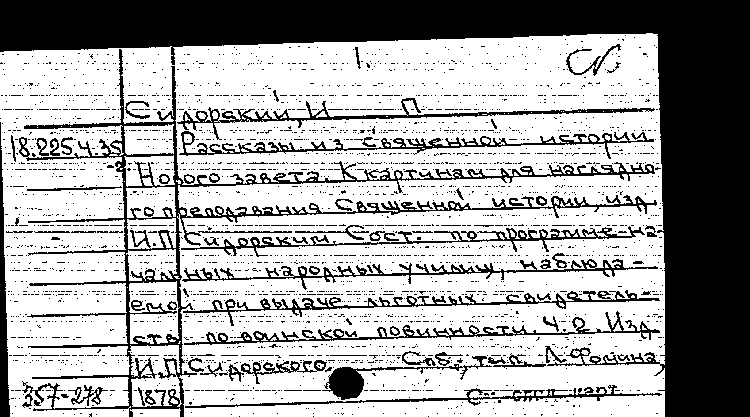 1.
Сидорский, И П
18.225.4.35 Рассказы из священной истории
-2 Нового завета. К картинам для наглядно-
го преподавания Священной истории, изд.
И.П.Сидорским. Сост. по программе на-
чальных народных училищ, наблюда-
емой при выдаче льготных свидетель-
ств по воинской повинности. Ч.2. Изд.
И.П.Сидорского. Спб., тип. Л.Фомина,
357-278 1878.